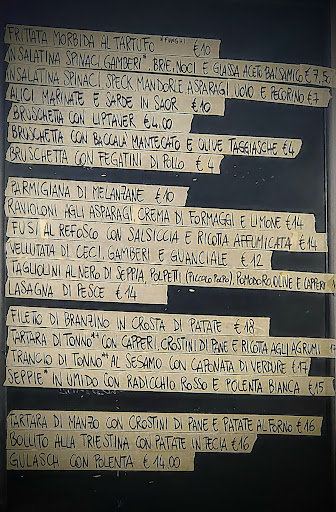 FRITTATA MORBIDA AL TARTUFO €10
INSALATINA SPINACI, GAMBERI*, BRIE, NOCI E GLASSA ACETO BALSAMICO €7,5
INSALATINA SPINACI SPECK MANDORLE ASPARAGI UOVO E PECORINO €7
ALICI MARINATE E SARDE IN SAOR €10
BRUSCHETTA CON LIPTAUER €4.00
BRUSCHETTA CON BACCALÀ MANTECATO E OLIVE TAGGIASCHE €4
BRUSCHETTA CON FEGATINI DI POLLO €4
PARMIGIANA DI MELANZANE €10
RAVIOLONI AGLI ASPARAGI, CREMA DI FORMAGGI E LIMONE €14
FUSI AL REFOSCO CON SALSICCIA E RICOTTA AFFUMICATA €14
VELLUTATA DI CECI, GAMBERI E GUANCIALE €12
TAGLIOLINI AL NERO DI SEPPIA, POLPETI (PICCOLO POLPO), POMODORO, OLIVE E CAPPERI
LASAGNA DI PESCE €14
FILETTO DI BRANZINO IN CROSTA DI PATATE €18
TARTARA DI TONNO** CON CAPPERI, CROSTINI DI PANE E RICOTTA AGLI AGRUMI
TRANCIO DI TONNO** AL SESAMO CON CAPONATA DI VERDURE €17
SEPPIE* IN UMIDO CON RADICCHIO ROSSO E POLENTA BIANCA €15
TARTARA DI MANZO CON CROSTINI DI PANE E PATATE AL FORNO €16
BOLLITO ALLA TRIESTINA CON PATATE IN TECIA €16
GULASCH CON POLENTA €14.00